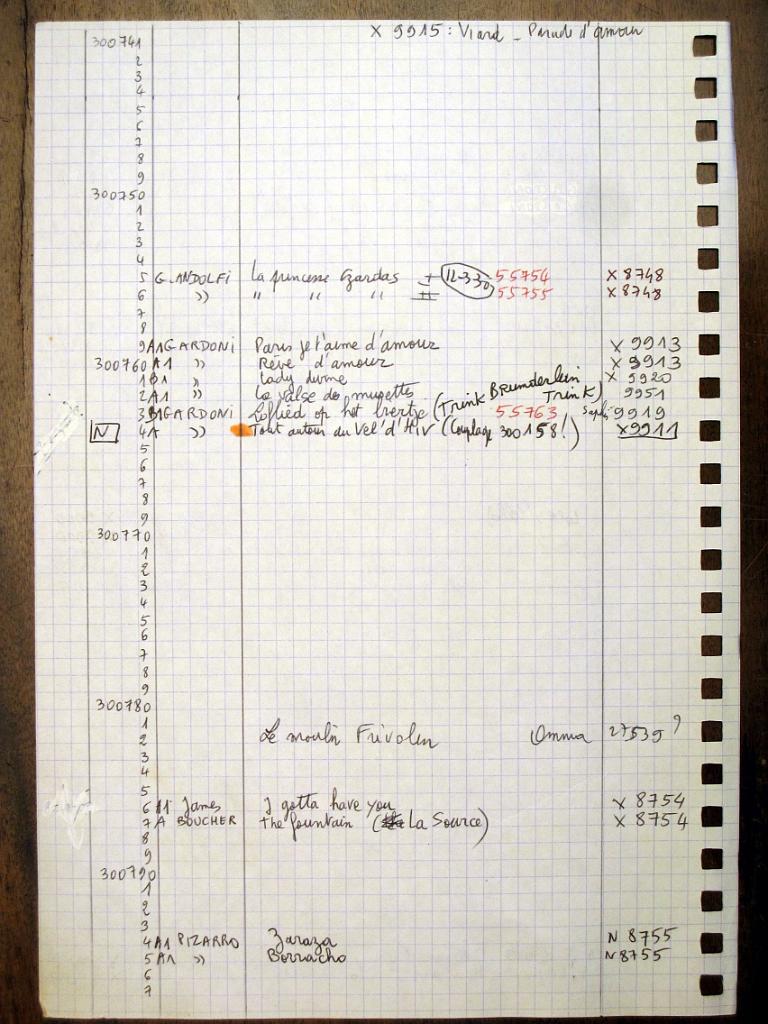 X 9915 : Viard - Parade d'amour
300741
2
3
4
5
6
7
8
9
300750
1
2
3
4
5 GANDOLFI La princesse Czardas 11-3-30 55754 X 8748
6 " " " " 55755 X 8748
7
8
9 A1 GARDONI Paris je t'aime d'amour X 9913
300760 A1 " Rêve d'amour X 9913
1 B1 " Lady divine X 9920
2 A1 " La valse des musettes 9951
3 B1 GARDONI Loflied op het biertje (Trink Brüunderlein Trink) 55763 9919
N 4 A " Tout autour du Vel' d'Hiv (Couplage 300158!) X9911
5
6
7
8
9
300770
1
2
3
4
5
6
7
8
9
300780
1
2 Le moulin Frivolen Omnia 27539 ?
3
4
5
6 A1 James I gotta have you X 8754
7 A BOUCHER The fountain (La Source) X 8754
8
9
300790
1
2
3
4 A1 PIZARRO Zaraza N 8755
5 A1 " Borracho N 8755
6
7